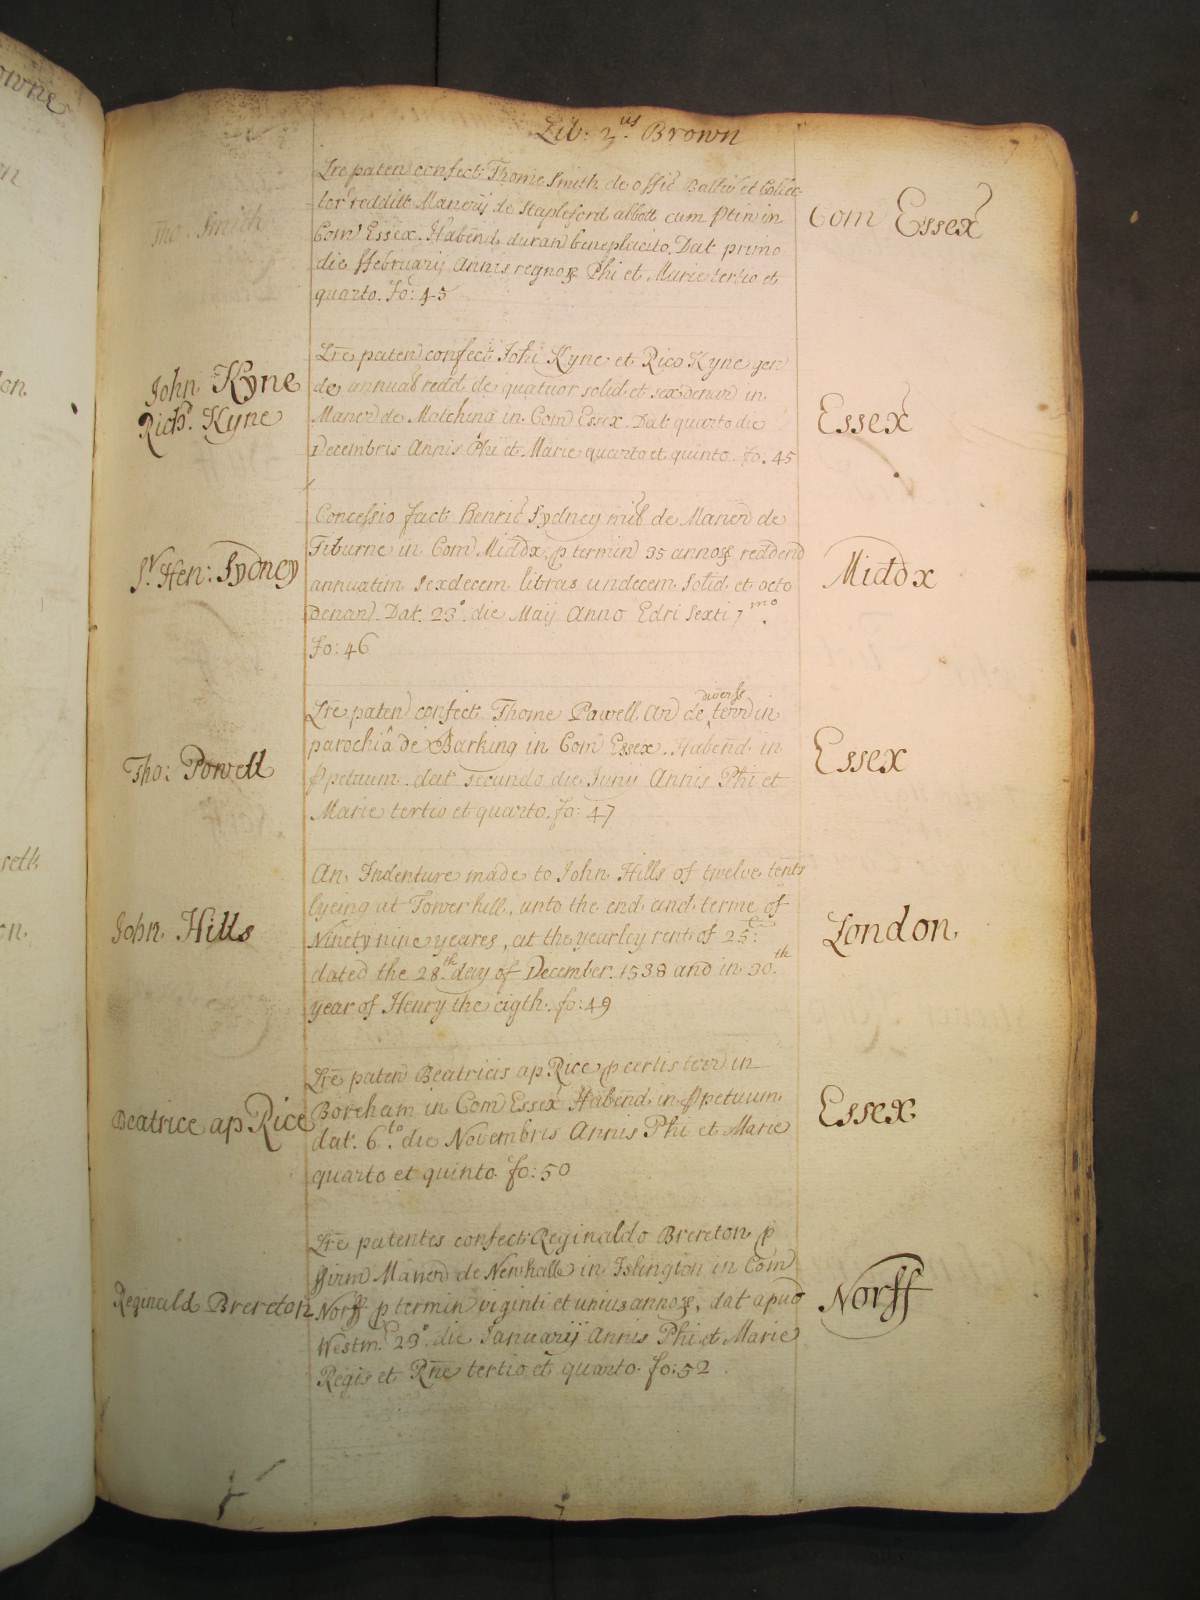 Lib: 2us. Brown
Tho. Smith
Lre paten confect Thome Smith de offic Ballivi et Collec-
tor reddit Manerij de Stapleford abbott cum ptin in
Com Essex. Habend duran beneplacito. Dat primo
die ffebruarij Annis regnoꝝ Phi et Marie tertio et
quarto. Fo: 45
Com Essex
John Kyne
Richd. Kyne
Lre paten confect Johi Kyne et Rico Kyne gen
de annual redd de quatuor solid et sex denar in
Maner de Matching in Com Essex. Dat quarto die
Decembris Annis Phi et Marie quarto et quinto. fo. 45
Essex
Sr Hen: Sydney
Concessio fact Henric Sydney mil de Maner de
Tiburne in Com Middx, p termin 35 annoꝝ reddend
annuatim sexdecem libras undecem solid et octo
Denar. Dat. 23o. die Maij Anno Edri Sexti 7mo.
Fo: 46
Middx
Tho: Powell
Lre paten confect Thome Pawell Ar de diverss terr in
parochia de Barking in Com Essex. Habend in
ppetuum. dat secundo die Junii Annis Phi et
Marie tertio et quarto. fo: 47
Essex
John Hills
An Indenture made to John Hills of twelve tents
lyeing at Tower hill, unto the end and terme of
Ninety nine yeares, at the yearley rent of 25
dated the 28th day of December. 1538 and in 30th
year of Henry the eigth. fo: 49
London
Beatrice ap Rice
Lre paten Beatricis ap Rice p certis terr in
Boreham in Com Essex Habend in ppetuum
dat. 6to. die Novembris Annis Phi et Marie
quarto et quinto. fo: 50
Essex
Reginald Brereton
Lre patentes confect Reginaldo Brereton p
ffirm Maner de Newhalle in Islington in Com
Norff p termin viginti et unius annoꝝ, dat apud
Westm. 29o. die Januarij Annis Phi et Marie
Regis et Rne tertio et quarto. fo: 52
Norff